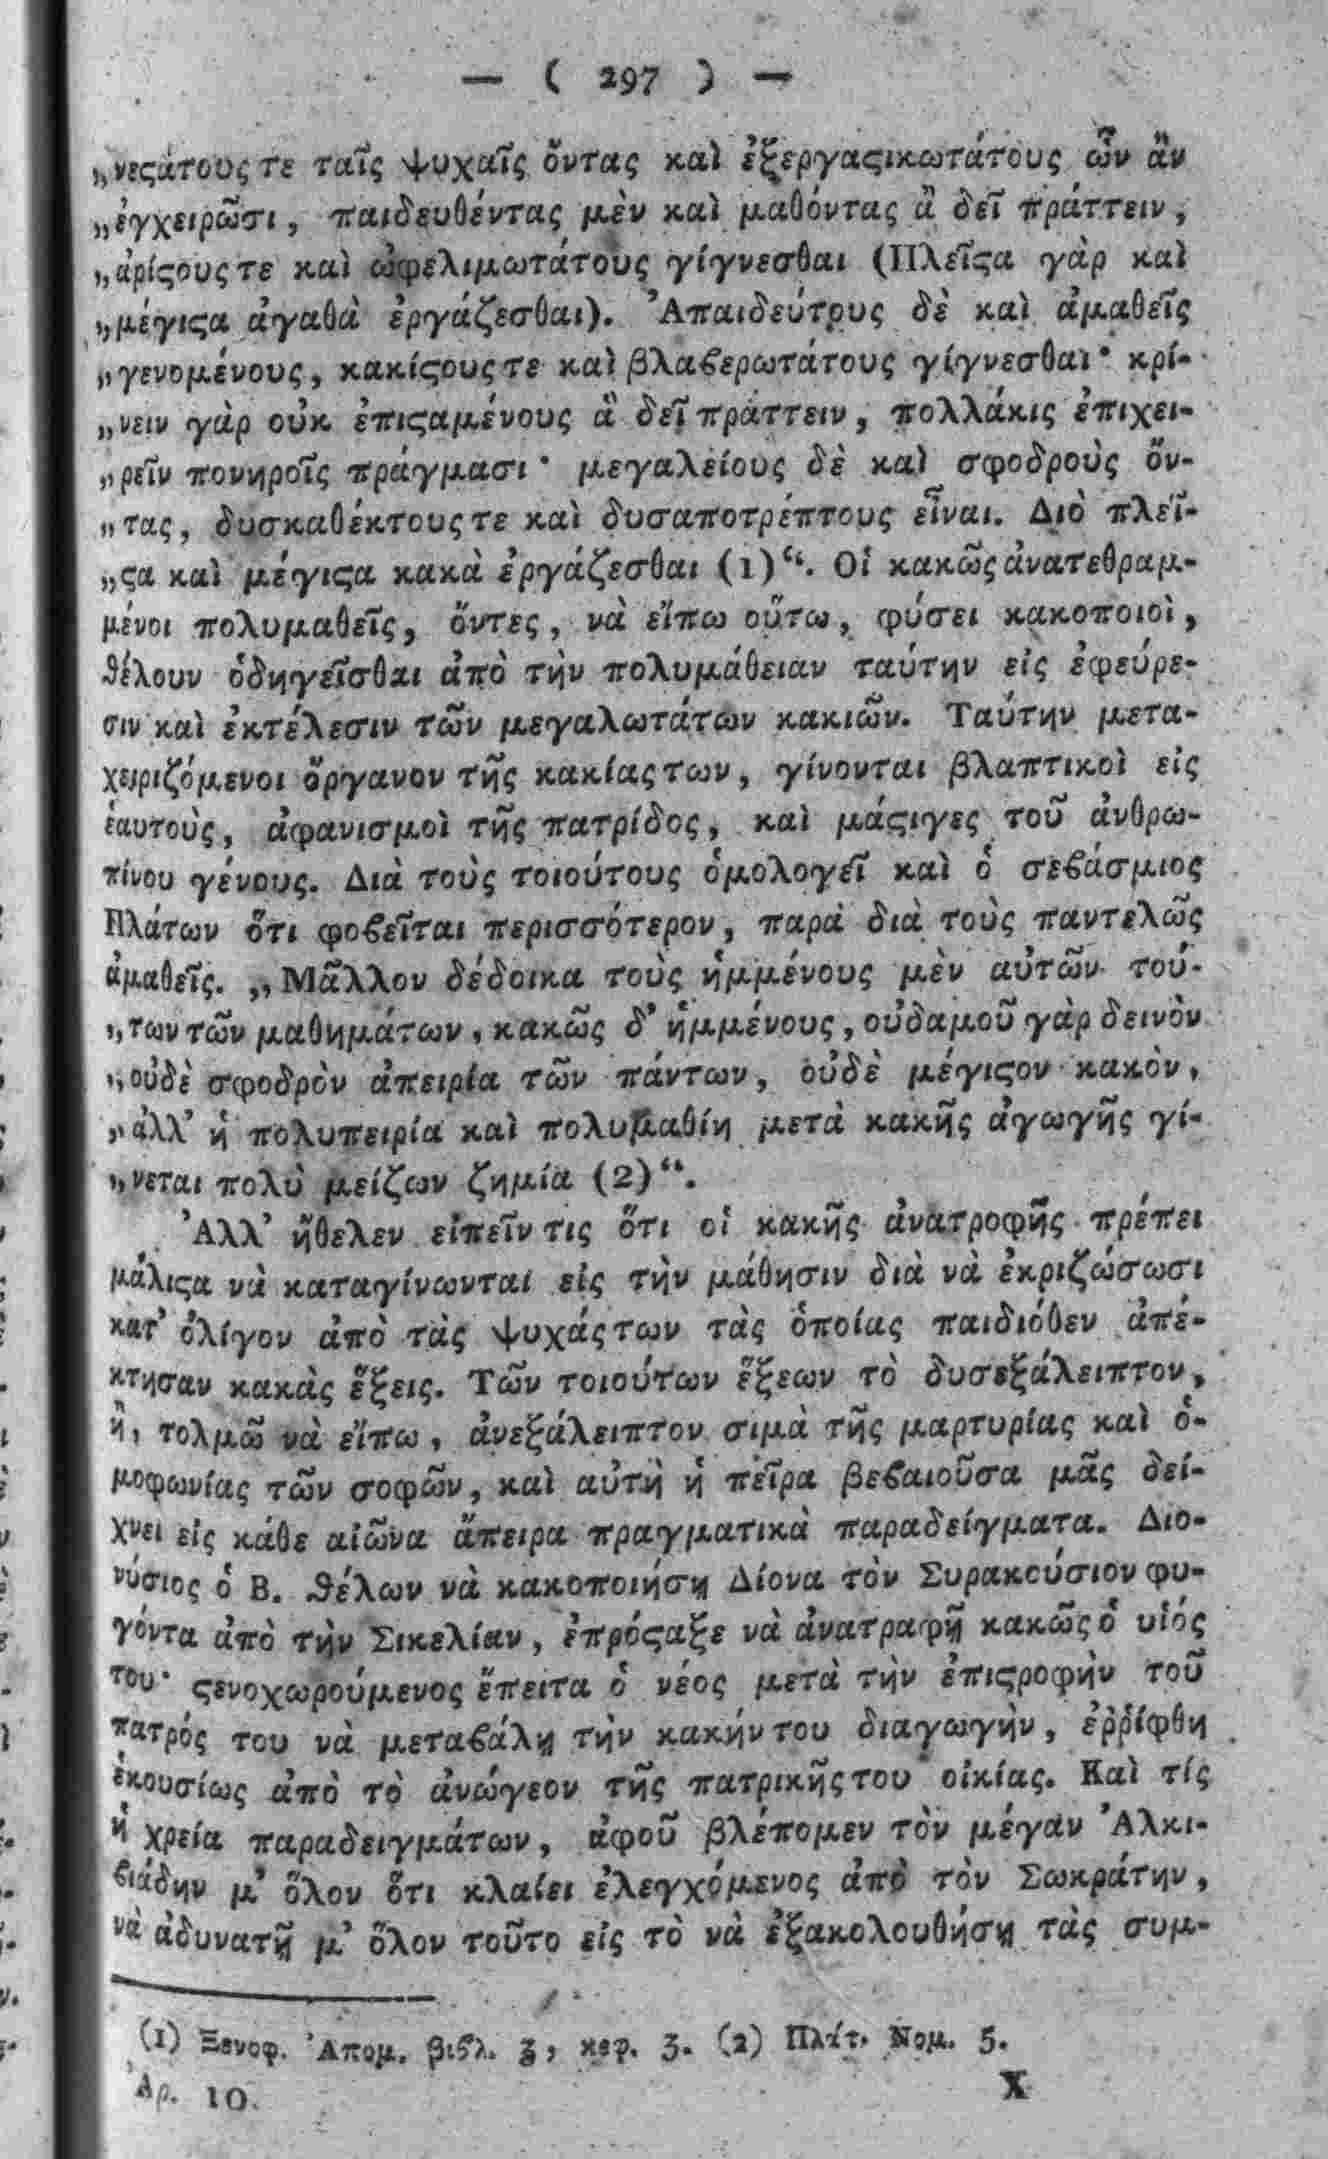 — ( 297 ) —
„νεϛάτους τε ταῖς ψυχαῖς ὄντας καὶ ἐξεργαϛικωτάτους ὧν ἂν
„ἐγχειρῶσι, παιδευθέντας μὲν καὶ μαθόντας ἃ δεῖ πράττειν,
„ἀρίϛους τε καὶ ὠφελιμωτάτους γίγνεσθαι (Πλεῖϛα γὰρ καὶ
„μέγιϛα ἀγαθὰ ἐργάζεσθαι). Ἀπαιδεύτους δὲ καὶ ἀμαθεῖς
„γενομένους, κακίϛους τε καὶ βλαβερωτάτους γίγνεσθαι· κρί-
„νειν γὰρ οὐκ ἐπιϛαμένους ἃ δεῖ πράττειν, πολλάκις ἐπιχει-
„ρεῖν πονηροῖς πράγμασι· μεγαλείους δὲ καὶ σφοδροὺς ὄν-
„τας, δυσκαθέκτους τε καὶ δυσαποτρέπτους εἶναι. Διὸ πλεῖ-
„ϛα καὶ μέγιϛα κακὰ ἐργάζεσθαι (1)“. Οἱ κακῶς ἀνατεθραμ-
μένοι πολυμαθεῖς, ὄντες, νὰ εἴπω οὕτω, φύσει κακοποιοὶ,
θέλουν ὁδηγεῖσθαι ἀπὸ τὴν πολυμάθειαν ταύτην εἰς ἐφεύρε-
σιν καὶ ἐκτέλεσιν τῶν μεγαλωτάτων κακιῶν. Ταύτην μετα-
χειριζόμενοι ὄργανον τῆς κακίας των, γίνονται βλαπτικοὶ εἰς
ἑαυτοὺς, ἀφανισμοὶ τῆς πατρίδος, καὶ μάϛιγες τοῦ ἀνθρω-
πίνου γένους. Διὰ τοὺς τοιούτους ὁμολογεῖ καὶ ὁ σεβάσμιος
Πλάτων ὅτι φοβεῖται περισσότερον, παρὰ διὰ τοὺς παντελῶς
ἀμαθεῖς. „Μᾶλλον δέδοικα τοὺς ἡμμένους μὲν αὐτῶν τού-
„των τῶν μαθημάτων, κακῶς δ' ἡμμένους, οὐδαμοῦ γὰρ δεινὸν
„οὐδὲ σφοδρὸν ἀπειρία τῶν πάντων, οὐδὲ μέγιϛον κακὸν,
„ἀλλ' ἡ πολυπειρία καὶ πολυμαθίη μετὰ κακῆς ἀγωγῆς γί-
„νεται πολὺ μείζων ζημία (2)“.
Ἀλλ' ἤθελεν εἰπεῖν τις ὅτι οἱ κακῆς ἀνατροφῆς πρέπει
μάλιϛα νὰ καταγίνωνται εἰς τὴν μάθησιν διὰ νὰ ἐκριζώσωσι
κατ' ὀλίγον ἀπὸ τὰς ψυχάς των τὰς ὁποίας παιδιόθεν ἀπέ-
κτησαν κακὰς ἕξεις. Τῶν τοιούτων ἕξεων τὸ δυσεξάλειπτον,
ἢ, τολμῶ νὰ εἴπω, ἀνεξάλειπτον σιμὰ τῆς μαρτυρίας καὶ ὁ-
μοφωνίας τῶν σοφῶν, καὶ αὐτὴ ἡ πεῖρα βεβαιοῦσα μᾶς δεί-
χνει εἰς κάθε αἰῶνα ἄπειρα πραγματικὰ παραδείγματα. Διο-
νύσιος ὁ Β. θέλων νὰ κακοποιήσῃ Δίονα τὸν Συρακούσιον φυ-
γόντα ἀπὸ τὴν Σικελίαν, ἐπρόϛαξε νὰ ἀνατραφῇ κακῶς ὁ υἱός
του· ϛενοχωρούμενος ἔπειτα ὁ νέος μετὰ τὴν ἐπιϛροφὴν τοῦ
πατρός του νὰ μεταβάλῃ τὴν κακήν του διαγωγὴν, ἐῤῥίφθη
ἑκουσίως ἀπὸ τὸ ἀνώγεον τῆς πατρικῆς του οἰκίας. Καὶ τίς
ἡ χρεία παραδειγμάτων, ἀφοῦ βλέπομεν τὸν μέγαν Ἀλκι-
βιάδην μ' ὅλον ὅτι κλαίει ἐλεγχόμενος ἀπὸ τὸν Σωκράτην,
νὰ ἀδυνατῇ μ' ὅλον τοῦτο εἰς τὸ νὰ ἐξακολουθήσῃ τὰς συμ-
(1) Ξενοφ. Ἀπομ. βιβλ. 3, κεφ. 3. (2) Πλάτ. Νομ. 5.
Ἀρ. 10. X